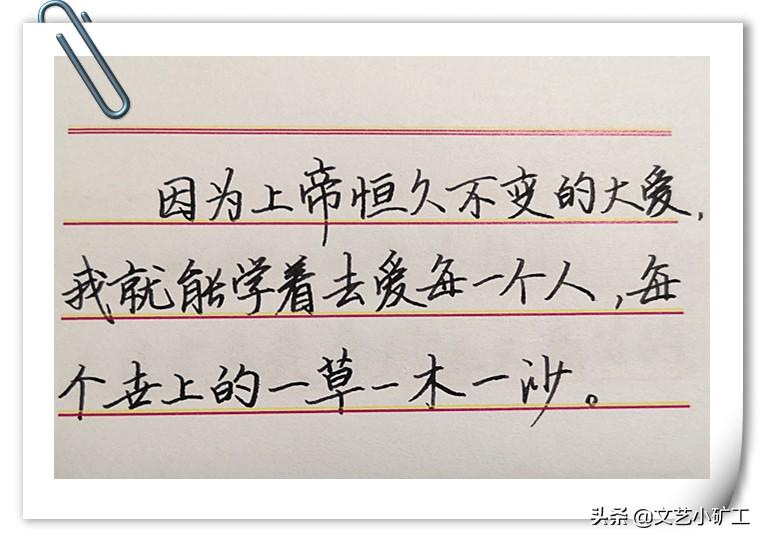 因为上帝恒久不变的大爱,
我就能学着去爱每一个人,每
个世上的一草一木一沙。
头条 @文艺小矿工